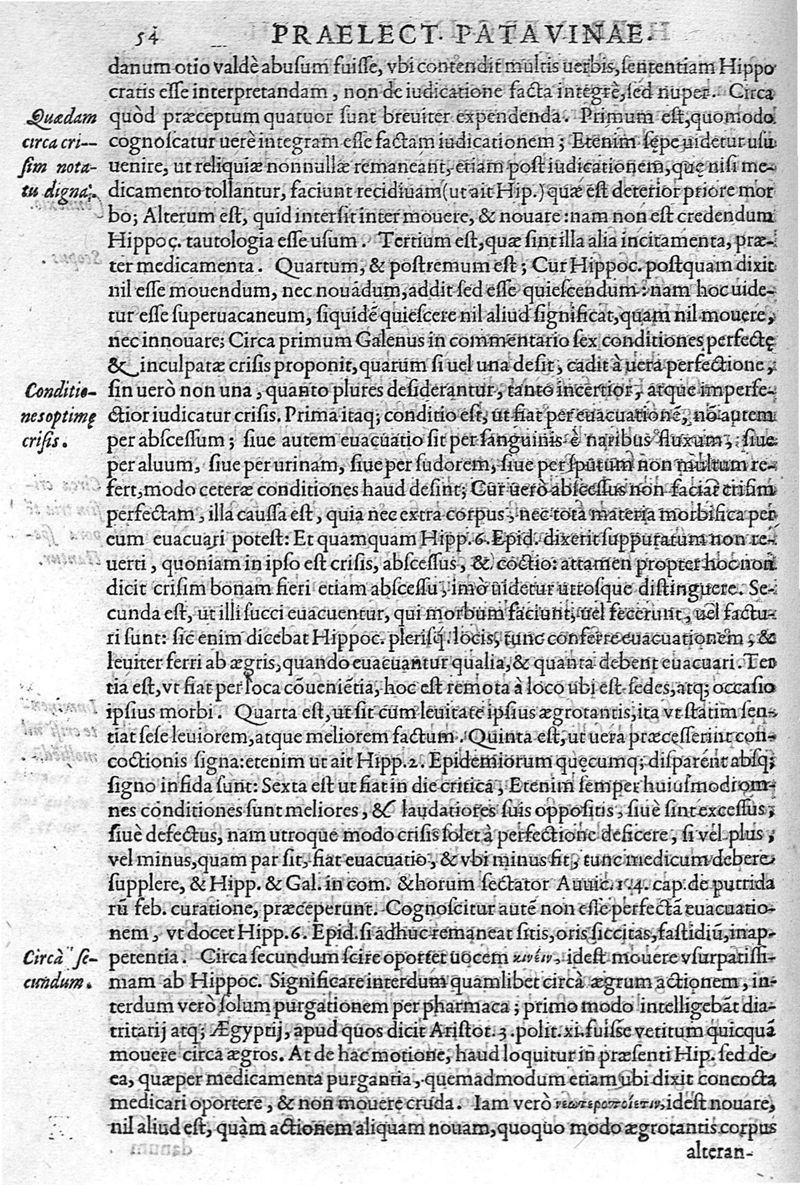 54 PRAELECT. PATAVINAE.
danum otio valdè abusum fuisse, vbi contendit multis uerbis, sententiam Hippo
cratis esse interpretandam, non de iudicatione facta integrè, sed nuper. Circa
Quædam
quòd præceptum quatuor sunt breuiter expendenda. Primum est, quomodo
circa cri-
cognoscatur uerè integram esse factam iudicationem; Etenim sępe uidetur usu
sim nota-
uenire, ut reliquiæ nonnullæ remaneant, etiam post iudicationem, quę nisi me-
tu digna.
dicamento tollantur, faciunt recidiuam (ut ait Hip.) quæ est deterior priore mor
bo; Alterum est, quid intersit inter mouere, & nouare: nam non est credendum
Hippoc. tautologia esse usum. Tertium est, quæ sint illa alia incitamenta, præ-
ter medicamenta. Quartum, & postremum est; Cur Hippoc. postquam dixit
nil esse mouendum, nec nouãdum, addit sed esse quiescendum: nam hoc uide-
tur esse superuacaneum, siquidẽ quiescere nil aliud significat, quam nil mouere,
nec innouare; Circa primum Galenus in commentario sex conditiones perfectę
& inculpatæ crisis proponit, quarum si uel una desit, cadit à uera perfectione,
Conditio-
sin uerò non una, quanto plures desiderantur, tanto incertior, atque imperfe-
nes optimę
ctior iudicatur crisis. Prima itaq; conditio est, ut fiat per euacuationẽ, nõ autem
crisis.
per abscessum; siue autem euacuatio sit per sanguinis è naribus fluxum, siue
per aluum, siue per urinam, siue per sudorem, siue per sputum non multum re-
fert, modo ceteræ conditiones haud desint; Cur uerò abscessus non faciat crisim
perfectam, illa caussa est, quia nec extra corpus, nec tota materia morbifica per
eum euacuari potest: Et quamquam Hipp. 6. Epid. dixerit suppuratum non re-
uerti, quoniam in ipso est crisis, abscessus, & coctio: attamen propter hoc non
dicit crisim bonam fieri etiam abscessu, imò uidetur utrosque distinguere. Se-
cunda est, ut illi succi euacuentur, qui morbum faciunt, uel fecerunt, uel factu-
ri sunt: sic enim dicebat Hippoc. plerisq. locis, tunc conferre euacuationem, &
leuiter ferri ab ægris, quando euacuantur qualia, & quanta debent euacuari. Ter
tia est, vt fiat per loca cõueniẽtia, hoc est remota à loco ubi est sedes, atq; occasio
ipsius morbi. Quarta est, ut sit cum leuitate ipsius ægrotantis, ita vt statim sen-
tiat sese leuiorem, atque meliorem factum. Quinta est, ut uera præcesserint con-
coctionis signa: etenim ut ait Hipp. 2. Epidemiorum quęcumq; disparẽt absq;
signo infida sunt: Sexta est ut fiat in die critica, Etenim semper huiusmodi om-
nes conditiones sunt meliores, & laudatiores suis oppositis, siuè sint excessus,
siuè defectus, nam utroque modo crisis solet à perfectione deficere, si vel plus,
vel minus, quam par sit, fiat euacuatio, & vbi minus fit, tunc medicum debere
supplere, & Hipp. & Gal. in com. & horum sectator Auuic. 1. 4. cap. de putrida
rũ feb. curatione, præceperunt. Cognoscitur autẽ non esse perfectã euacuatio-
nem, vt docet Hipp. 6. Epid. si adhuc remaneat sitis, oris siccitas, fastidiũ, inap-
Circà se-
petentia. Circa secundum scire oportet uocem κινέιν, idest mouere vsurpatissi-
cundum.
mam ab Hippoc. Significare interdum quamlibet circà ægrum actionem, in-
terdum verò solum purgationem per pharmaca; primo modo intelligebãt dia-
tritarij atq; Ægyptij, apud quos dicit Aristot. 3. polit. xi. fuisse vetitum quicquã
mouere circa ægros. At de hac motione, haud loquitur in præsenti Hip. sed de
ea, quæ per medicamenta purgantia, quemadmodum etiam ubi dixit concocta
medicari oportere, & non mouere cruda. Iam verò idest nouare,
nil aliud est, quàm actionem aliquam nouam, quoquo modo ægrotantis corpus
alteran-